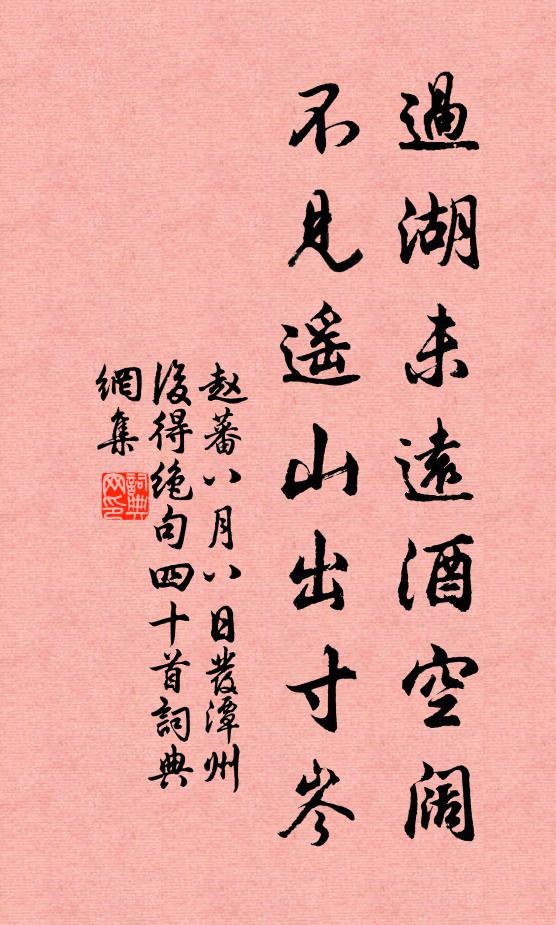 過湖未遠酒空阔
不見遥山出寸岑
赵蕃八月八日發潭州
後得绝句四十首詞典
網集
詞典
网印